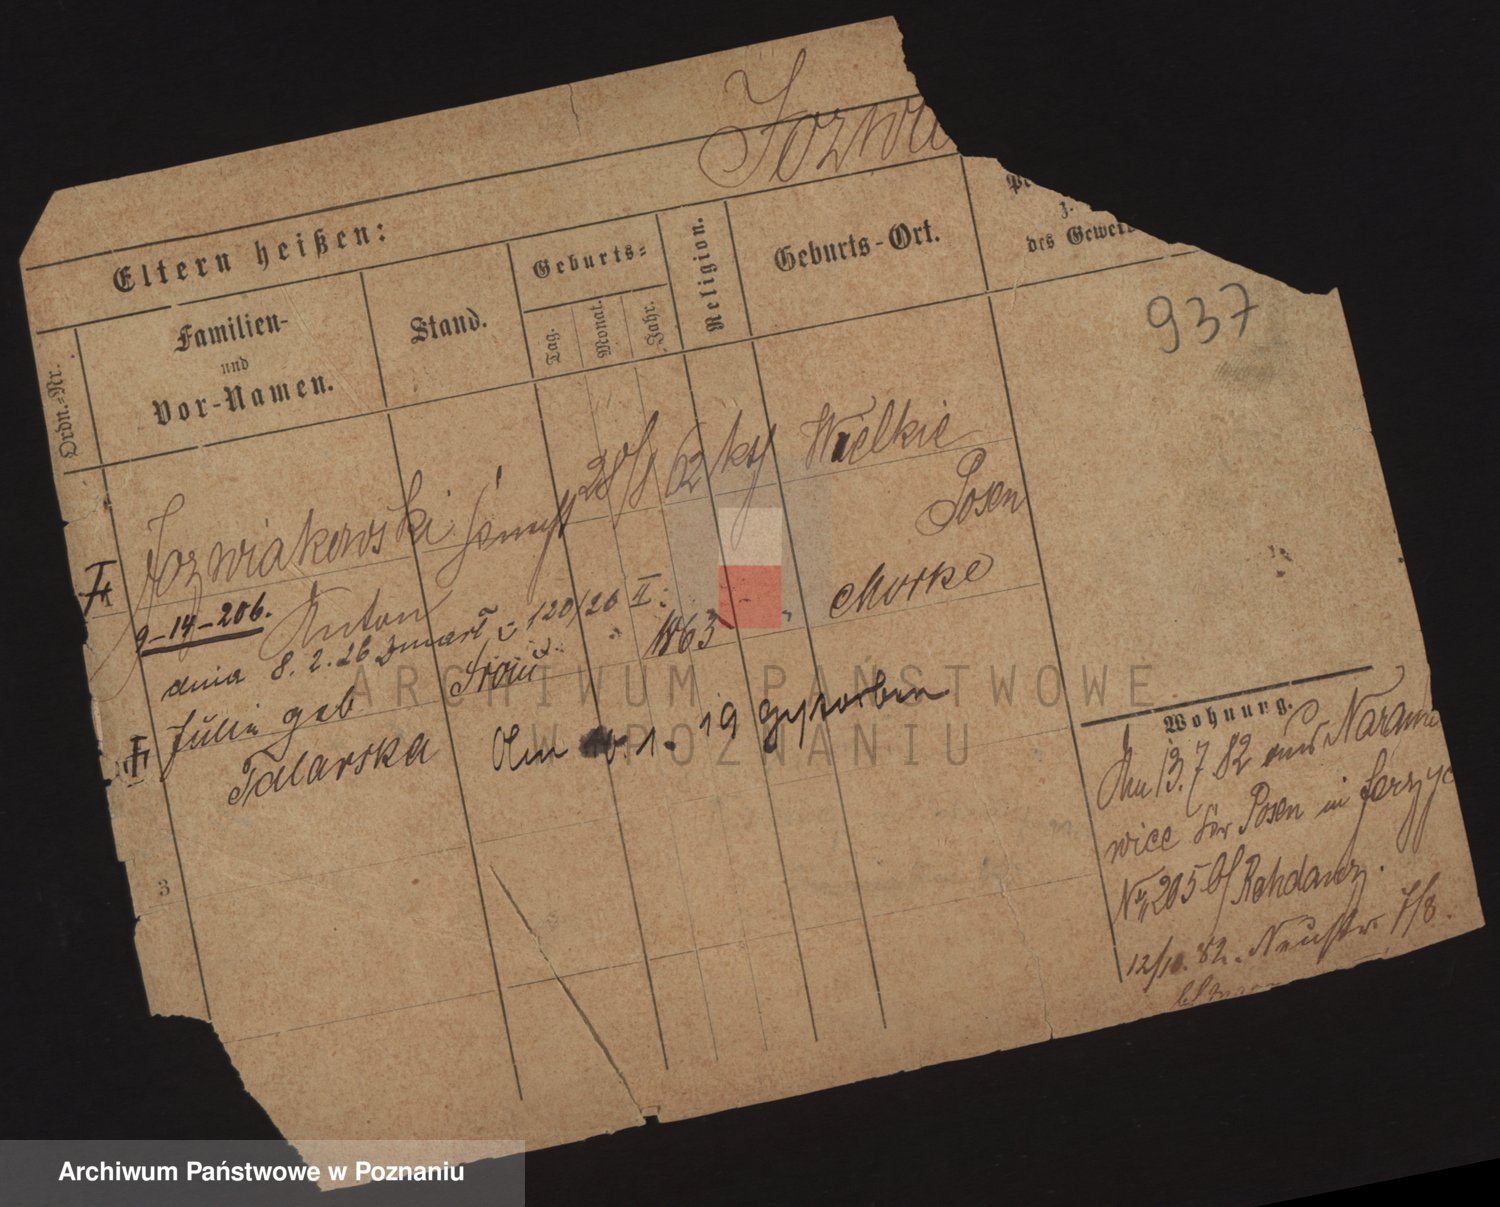 Jozwia
Eltern heißen:
Ordn.-Nr.
Familien-
und
Vor-Namen.
Stand.
Geburts-
Tag.
Monat.
Jahr.
Religion.
Geburts-Ort.
des Gewerb
937
Jozwiakowski 28/8 62 kt Wielkie
Posen
9-14-206.
Anton
dnia 8. 2. 26 zmarł 120/26 II.
1863 " Morke
Julie geb Frau
Talarska
Am 1. 19 gestorben
3
Wohnung.
Am 13. 7. 82 aus Naramo
wice bei Posen in Jerzyc
No 205 b/ Rahdanz.
12/10. 82. Neustr. 7/8.
ARCHIWUM PAŃSTWOWE
W POZNANIU
Archiwum Państwowe w Poznaniu